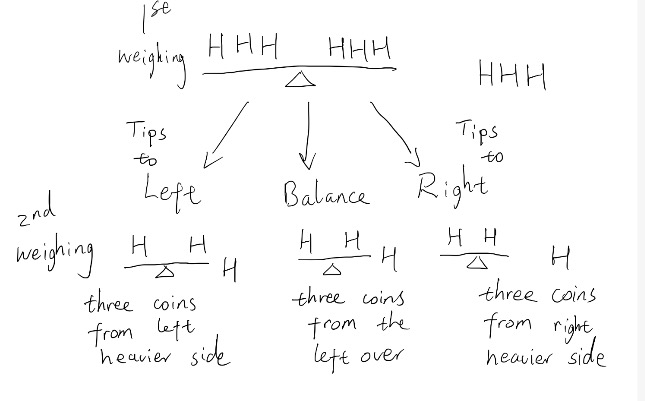 1st
weighing
H H H H H H
H H H
Tips
to
Left
Balance
Tips
to
Right
2nd
weighing
H H
H
three coins
from left
heavier side
H H
H
three coins
from the
left over
H H
H
three coins
from right
heavier side